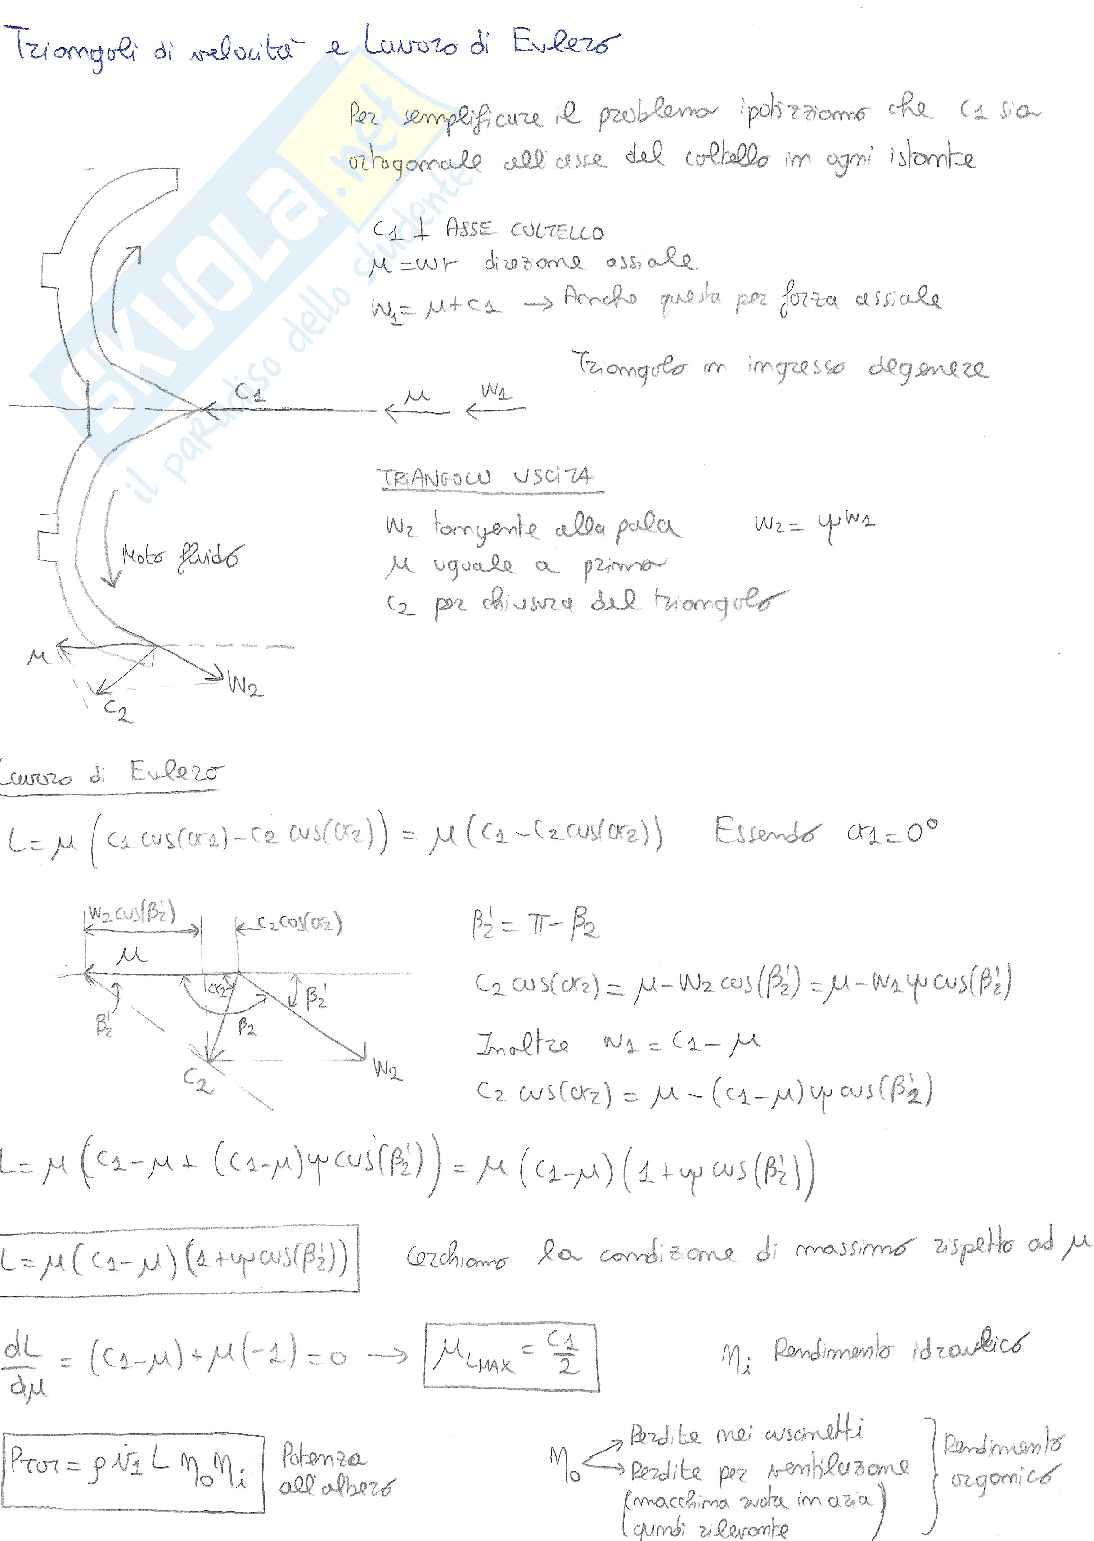 Triangoli di velocità e Lavoro di Eulero
Per semplificare il problema ipotizziamo che c1 sia
ortogonale all'asse del coltello in ogni istante
C1 ⊥ ASSE COLTELLO
μ = ωr direzione assiale
W1 = μ + C1 → Anche questa per forza assiale
Triangolo in ingresso degenere
C1
μ
W1
TRIANGOLO USCITA
W2 tangente alla pala W2 = ψW1
μ uguale a prima
C2 per chiusura del triangolo
Moto fluido
μ
C2
W2
SKUOLA.net
il paradiso dello studente
Lavoro di Eulero
L = μ (C1 cos(α1) - C2 cos(α2)) = μ (C1 - C2 cos(α2)) Essendo α1 = 0°
W2 cos(β2') C2 cos(α2)
μ
α2
β2'
β2
β2'
C2
W2
β2' = π - β2
C2 cos(α2) = μ - W2 cos(β2') = μ - W1 ψ cos(β2')
Inoltre W1 = C1 - μ
C2 cos(α2) = μ - (C1 - μ) ψ cos(β2')
L = μ (C1 - μ + (C1 - μ) ψ cos(β2')) = μ (C1 - μ) (1 + ψ cos(β2'))
L = μ (C1 - μ) (1 + ψ cos(β2')) Cerchiamo la condizione di massimo rispetto ad μ
dL/dμ = (C1 - μ) + μ(-1) = 0 → μLMAX = C1/2 ηi Rendimento idraulico
Ptur = ρ V̇1 L ηo ηi Potenza all'albero
ηo
Perdite nei cuscinetti
Perdite per ventilazione
(macchina ruota in aria)
(quindi rilevante
Rendimento
organico